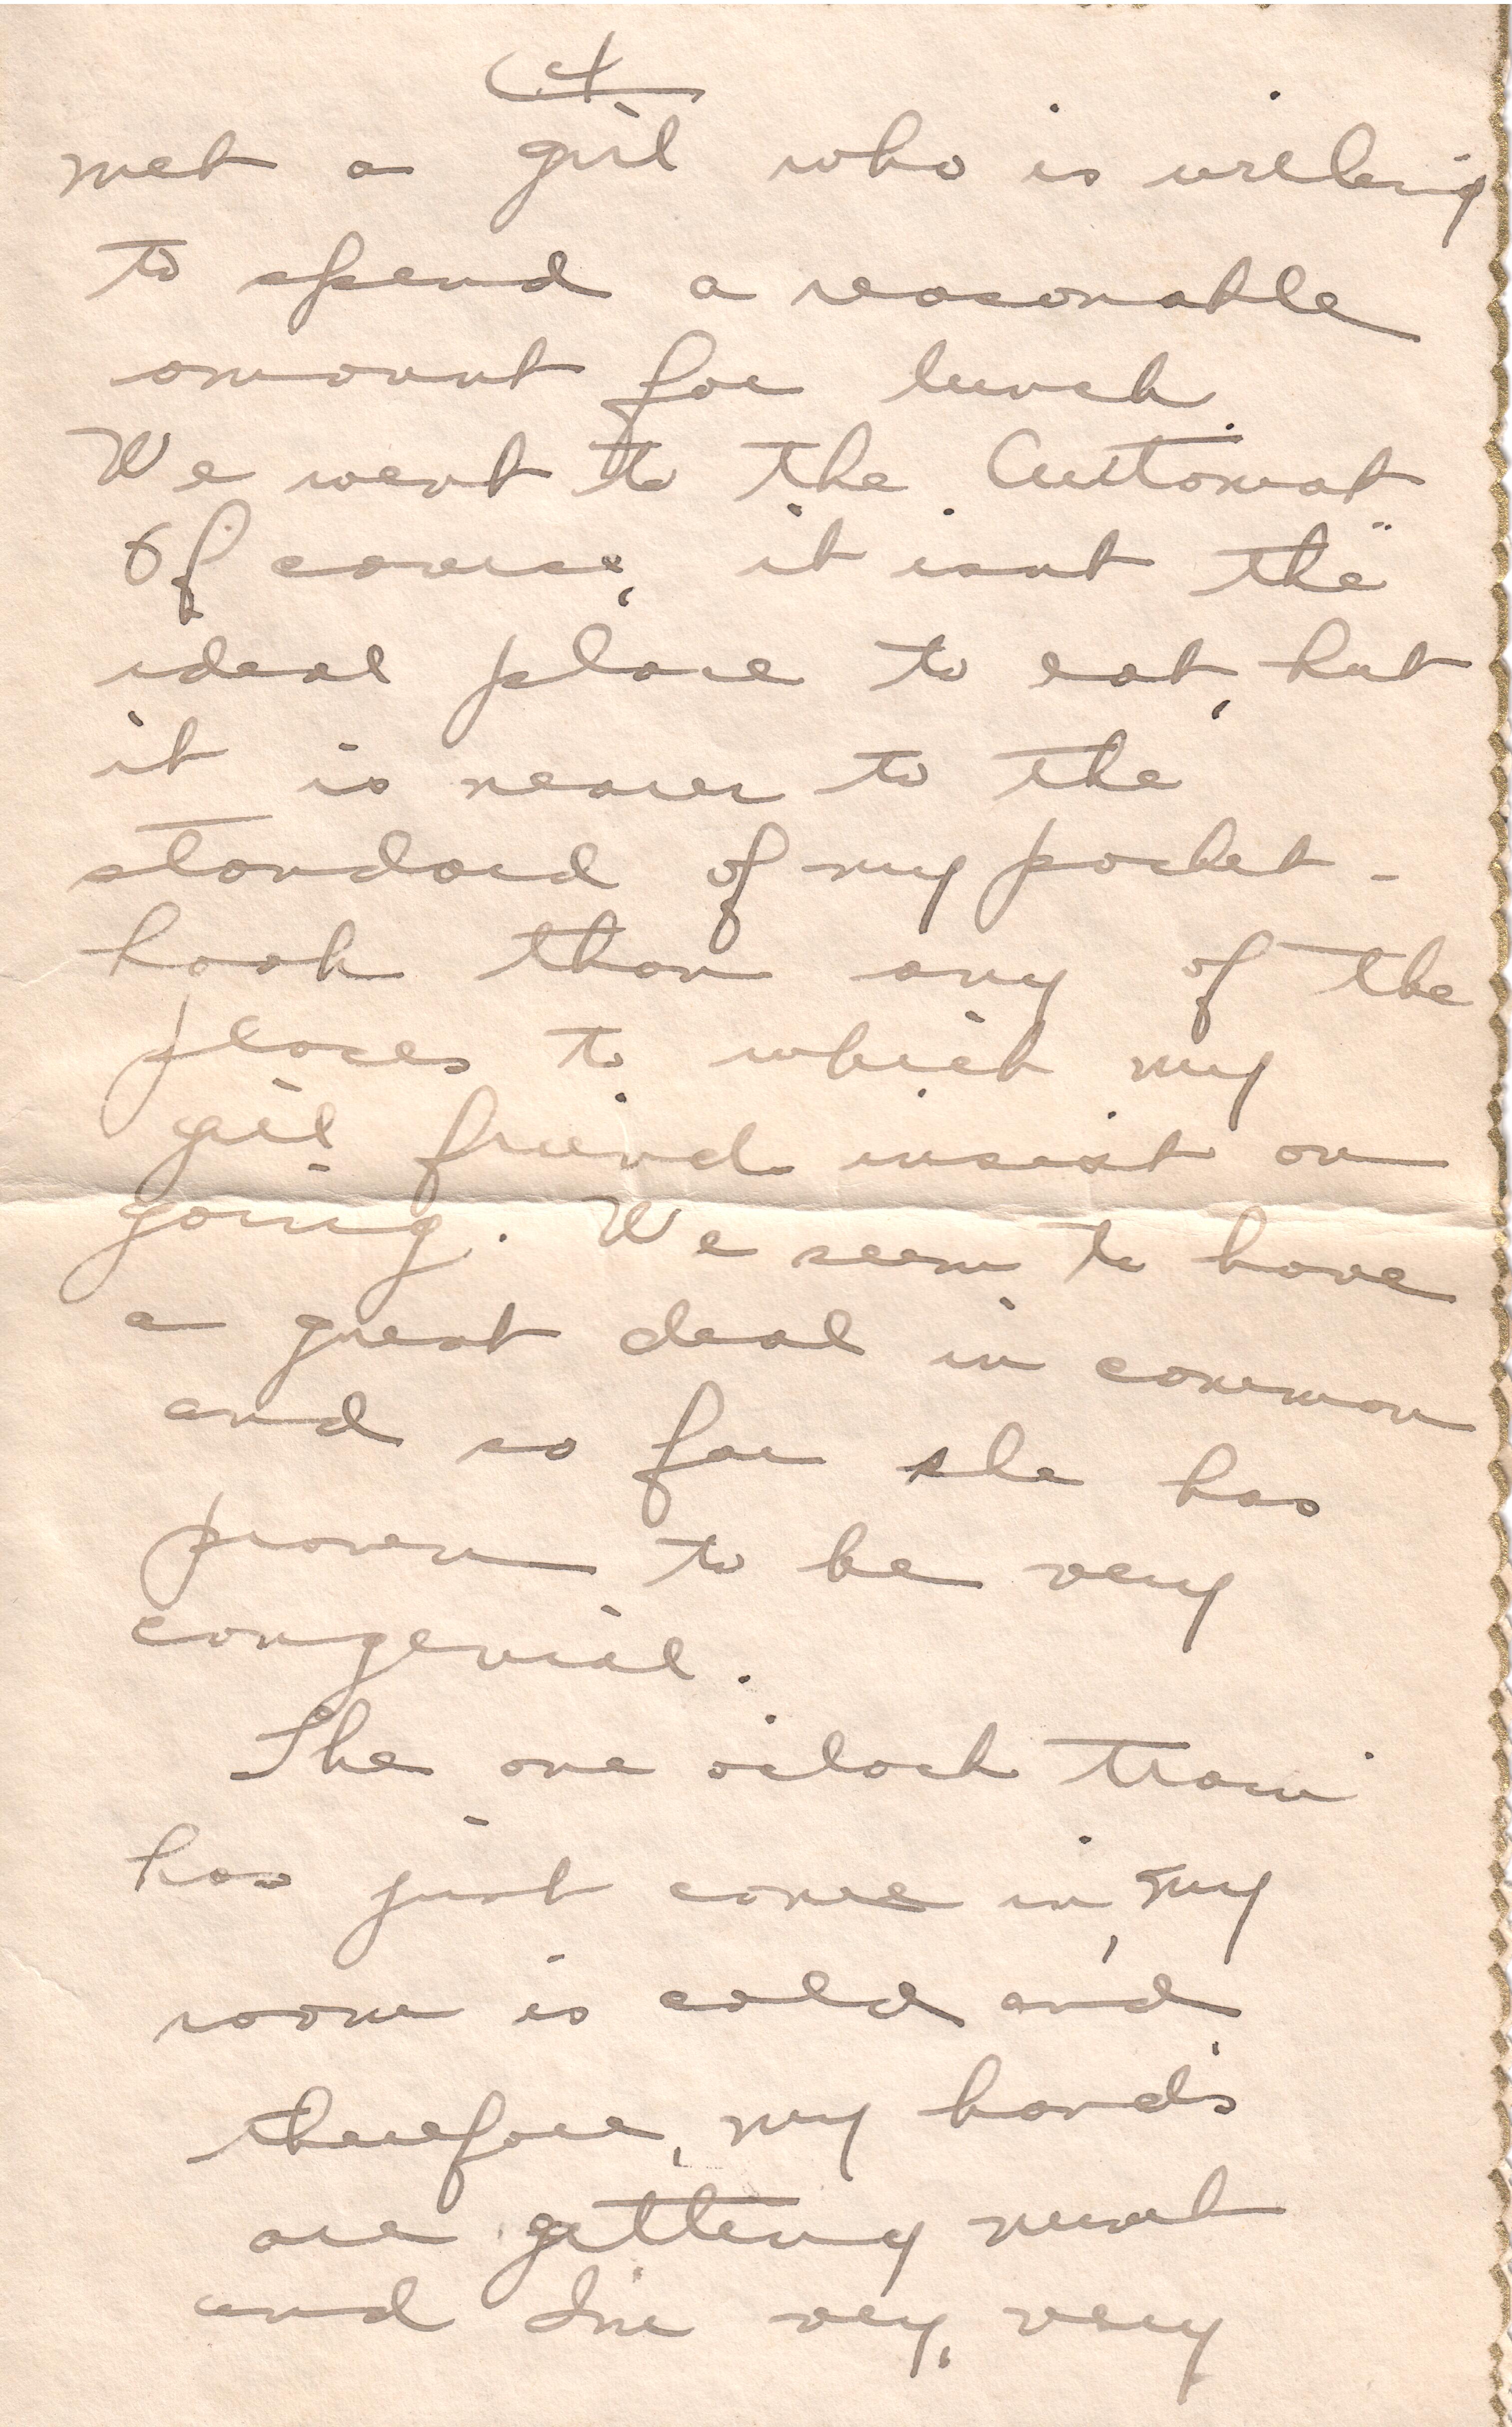 4
met a girl who is willing
to spend a reasonable
amount for lunch.
We went to the "Automat"
Of course, it isnt the
ideal place to eat, but
it is nearer to the
standard of my pocket-
book than any of the
places to which my
girl friends insist on
going. We seem to have
a great deal in common
and so far she has
proven to be very
congenial.
The one o'clock train
has just come in, my
room is cold and,
therefore, my hands
are getting numb
and I'm very, very